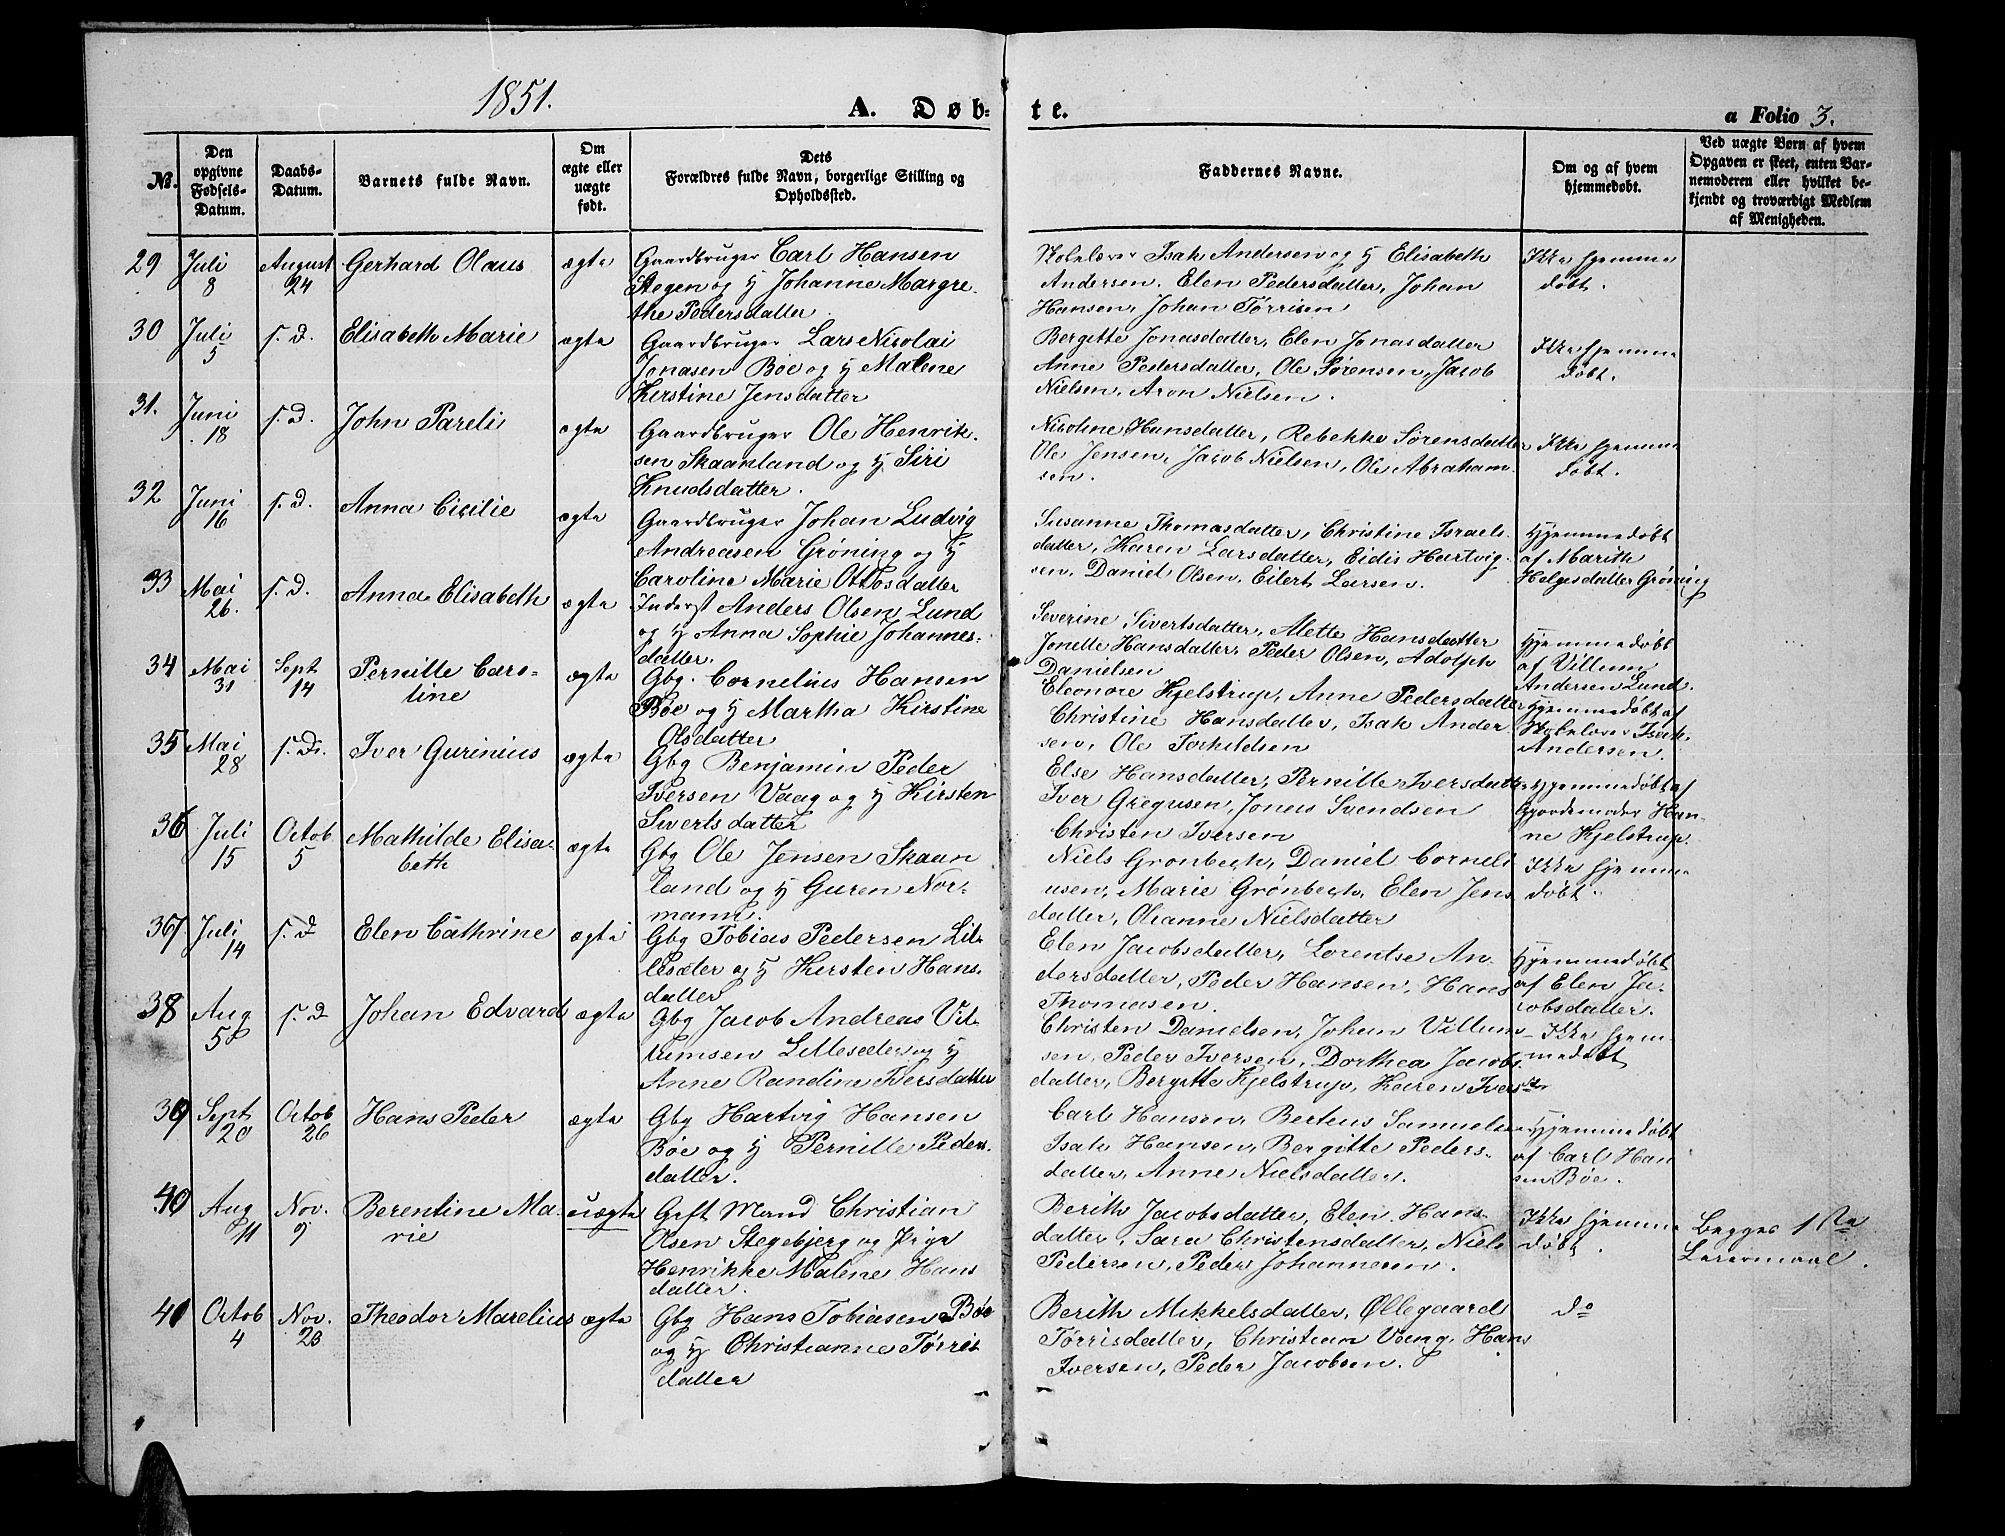 1851. A. Døb- te. a Folio 3.
No. Den opgivne Fødsels-Datum. Daabs-Datum. Barnets fulde Navn. Om ægte eller uægte født. Dets Forældres fulde Navn, borgerlige Stilling og Opholdssted. Faddernes Navne. Om og af hvem hjemmedøbt. Ved uægte Børn af hvem Opgaven er skeet, enten Barnemoderen eller hvilket bekjendt og troværdigt Medlem af Menigheden.
29 Juli 8 August 24 Gerhard Olaus ægte
Gaardbruger Carl Hansen
Stegen og H Johanne Margre-
the Pedersdatter
Skolelærer Isak Andersen og H Elisabeth
Andersen, Elen Pedersdatter, Johan
Hansen, Johan Tørrisen
Ikke hjemme
døbt.
30 Juli 5 s. D. Elisabeth Marie ægte
Gaardbruger Lars Nicolai
Jonasen Bøe og H Malene
Kirstine Jensdatter
Bergitte Jonasdatter, Elen Jonasdatter
Anne Pedersdatter, Ole Sørensen, Jacob
Nielsen, Aron Nielsen.
Ikke hjemme
døbt.
31. Juni 18 s. D. John Pareli ægte
Gaardbruger Ole Henrik-
sen Skaanland og H Siri
Knudsdatter.
Nicoline Hansdatter, Rebekka Sørensdatter
Ole Jensen, Jacob Nielsen, Ole Abraham-
sen.
Ikke hjemme
døbt.
32 Juni 16 s. D. Anna Cicilie ægte
Gaardbruger Johan Ludvig
Andreasen Grøning og H
Caroline Marie Ottosdatter
Susanne Thomasdatter, Christine Israels-
datter, Karen Larsdatter, Eidis Hartvig-
sen, Daniel Olsen, Eilert Larsen.
Hjemmedøbt
af Marith
Helgesdatter Grøning
33 Mai 26. s. D. Anna Elisabeth ægte
Inderst Anders Olsen Lund
og H Anna Sophie Johannes-
datter.
Severine Sivertsdatter, Alette Hansdatter
Jonette Hansdatter, Peder Olsen, Adolph
Danielsen
Hjemmedøbt
af Villum
Andersen Lund.
34 Mai 31 Sept 14 Pernille Caro-
line ægte
Gbg. Cornelius Hansen
Bøe og H Martha Kirstine
Olsdatter
Eleonore Kjelstrup, Anne Pedersdatter
Christine Hansdatter, Isak Ander
sen, Ole Torkildsen
Hjemmedøbt af
Skolelærer Isak
Andersen.
35 Mai 28 s. D. Iver Gurinius ægte
Gbg Benjamin Peder
Iversen Vaag og H Kirsten
Sivertsdatter
Else Hansdatter, Pernille Iversdatter
Iver Gregusen, Jonas Svendsen
Christen Iversen
Hjemmedøbt af
Gjordemoder Han-
ne Kjelstrup.
36 Juli 15 Octob 5 Mathilde Elisa-
beth ægte
Gbg Ole Jensen Skaan
land og H Guren Nor-
mann.
Niels Grønbech, Daniel Corneli
usen, Marie Grønbech, Elen Jens
datter, Oleanne Nielsdatter
Ikke hjemme
døbt.
37 Juli 14 s. D Elen Cathrine ægte
Gbg Tobias Pedersen Lil-
lesæter og H Kirsten Hans-
datter
Elen Jacobsdatter, Lorentse An-
dersdatter, Peder Hansen, Hans
Thomasen.
Hjemmedøbt
af Elen Ja-
cobsdatter.
38 Aug 5 s. D Johan Edvard ægte
Gbg Jacob Andreas Vil-
lumsen Lillesæter og H
Anne Randine Iversdatter
Christen Danielsen, Johan Villum-
sen, Peder Iversen, Dorthea Jacobs
datter, Bergitte Kjelstrup, Karen Iversdtr
Ikke hjem-
medøbt
39 Sept 20 Octob 26 Hans Peder ægte
Gbg Hartvig Hansen
Bøe og H Pernille Peders-
datter.
Carl Hansen, Berteus Samuelsen
Isak Hansen, Bergitte Peders-
datter, Anne Nielsdatter.
Hjemmedøbt
af Carl Han
sen Bøe.
40 Aug 11 Nov. 9 Berentine Ma-
rie uægte
Gift Mand Christian
Olsen Stegebjerg og Pige
Henrikke Malene Hans
datter.
Berith Jacobsdatter, Elen Hans-
datter, Sara Christensdatter, Niels
Pedersen, Peder Johannesen.
Ikke hjemme
døbt.
Begges 1ste
Leiermaal.
41 Octob 4 Nov. 23 Theodor Marelius ægte
Gbg Hans Tobiasen Bøe
og H Christianne Tørris
datter
Berith Mikkelsdatter, Øllegaard
Tørrisdatter, Christian Vaag, Hans
Iversen, Peder Jacobsen.
do